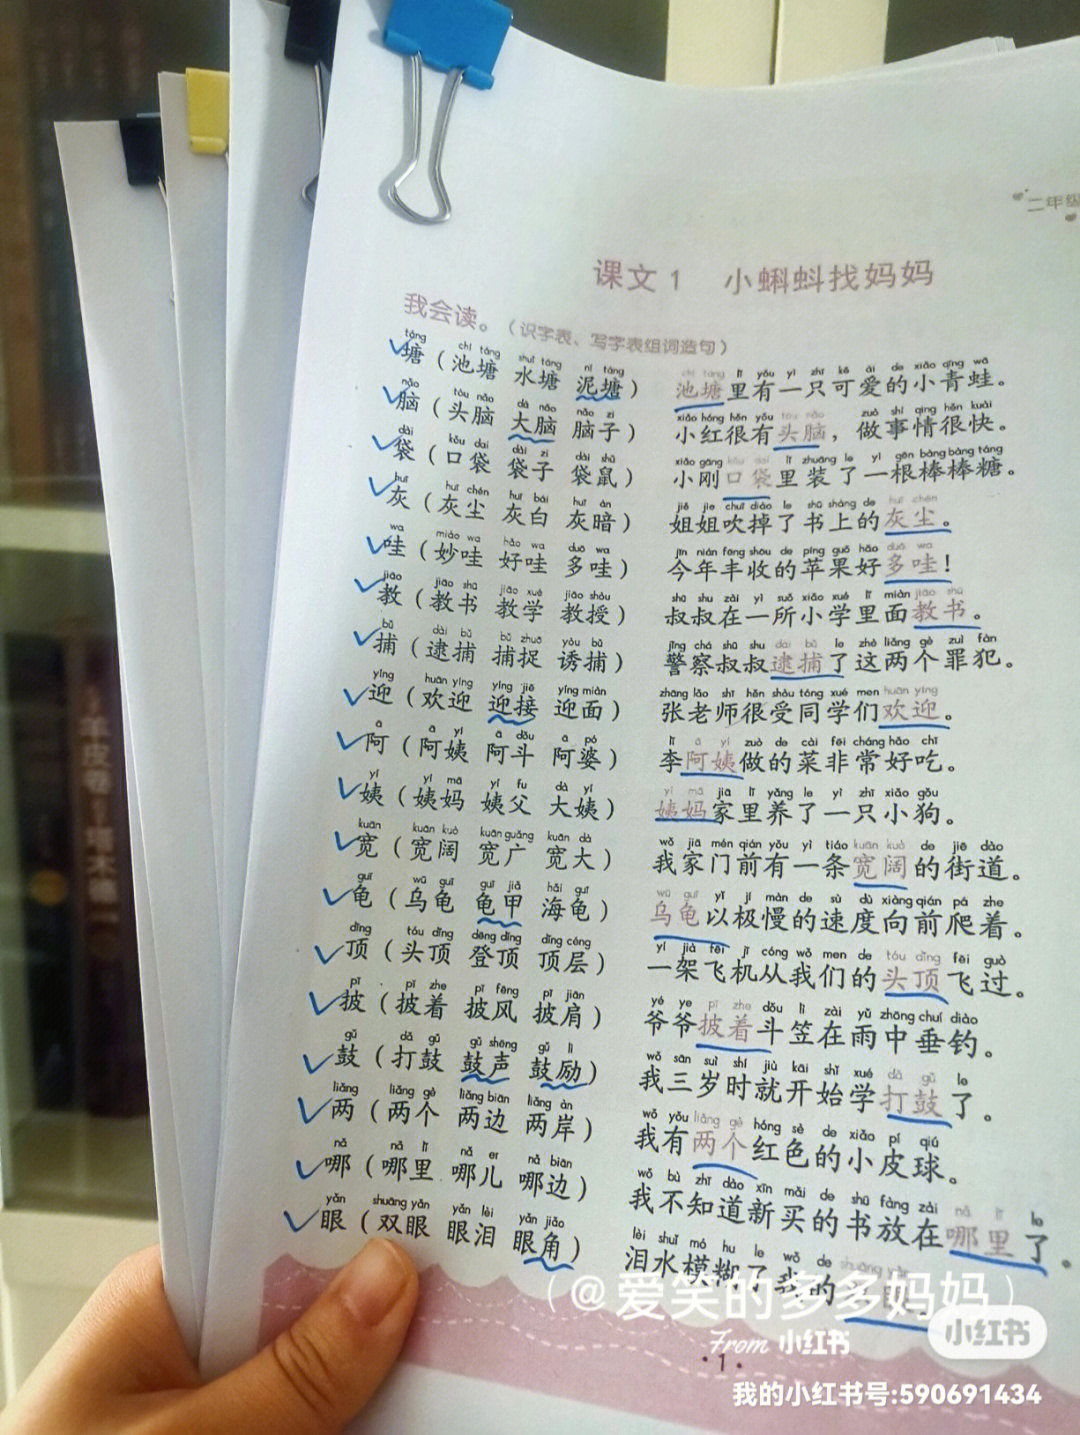 二年级
课文1 小蝌蚪找妈妈
我会读。(识字表、写字表组词造句)
táng chí táng shuǐ táng ní táng chí táng lǐ yǒu yì zhī kě ài de xiǎo qīng wā
塘(池塘 水塘 泥塘) 池塘里有一只可爱的小青蛙。
nǎo tóu nǎo dà nǎo nǎo zi xiǎo hóng hěn yǒu tóu nǎo zuò shì qing hěn kuài
脑(头脑 大脑 脑子) 小红很有头脑,做事情很快。
dài kǒu dai dài zi dài shǔ xiǎo gāng kǒu dai lǐ zhuāng le yì gēn bàng bàng táng
袋(口袋 袋子 袋鼠) 小刚口袋里装了一根棒棒糖。
huī huī chén huī bái huī àn jiě jie chuī diào le shū shàng de huī chén
灰(灰尘 灰白 灰暗) 姐姐吹掉了书上的灰尘。
wa miào wa hǎo wa duō wa jīn nián fēng shōu de píng guǒ hǎo duō wa
哇(妙哇 好哇 多哇) 今年丰收的苹果好多哇!
jiāo jiāo shū jiāo xué jiāo shòu shū shu zài yì suǒ xiǎo xué lǐ miàn jiāo shū
教(教书 教学 教授) 叔叔在一所小学里面教书。
bǔ dài bǔ bǔ zhuō yòu bǔ jǐng chá shū shu dài bǔ le zhè liǎng gè zuì fàn
捕(逮捕 捕捉 诱捕) 警察叔叔逮捕了这两个罪犯。
yíng huān yíng yíng jiē yíng miàn zhāng lǎo shī hěn shòu tóng xué men huān yíng
迎(欢迎 迎接 迎面) 张老师很受同学们欢迎。
ā ā yí ā dǒu ā pó lǐ ā yí zuò de cài fēi cháng hǎo chī
阿(阿姨 阿斗 阿婆) 李阿姨做的菜非常好吃。
yí yí mā yí fu dà yí yí mā jiā lǐ yǎng le yì zhī xiǎo gǒu
姨(姨妈 姨父 大姨) 姨妈家里养了一只小狗。
kuān kuān kuò kuān guǎng kuān dà wǒ jiā mén qián yǒu yì tiáo kuān kuò de jiē dào
宽(宽阔 宽广 宽大) 我家门前有一条宽阔的街道。
guī wū guī guī jiǎ hǎi guī wū guī yǐ jí màn de sù dù xiàng qián pá zhe
龟(乌龟 龟甲 海龟) 乌龟以极慢的速度向前爬着。
dǐng tóu dǐng dēng dǐng dǐng céng yí jià fēi jī cóng wǒ men de tóu dǐng fēi guò
顶(头顶 登顶 顶层) 一架飞机从我们的头顶飞过。
pī pī zhe pī fēng pī jiān yé ye pī zhe dǒu lì zài yǔ zhōng chuí diào
披(披着 披风 披肩) 爷爷披着斗笠在雨中垂钓。
gǔ dǎ gǔ gǔ shēng gǔ lì wǒ sān suì shí jiù kāi shǐ xué dǎ gǔ le
鼓(打鼓 鼓声 鼓励) 我三岁时就开始学打鼓了。
liǎng liǎng gè liǎng biān liǎng àn wǒ yǒu liǎng gè hóng sè de xiǎo pí qiú
两(两个 两边 两岸) 我有两个红色的小皮球。
nǎ nǎ lǐ nǎ er nǎ biān wǒ bù zhī dào xīn mǎi de shū fàng zài nǎ lǐ le
哪(哪里 哪儿 哪边) 我不知道新买的书放在哪里了。
yǎn shuāng yǎn yǎn lèi yǎn jiǎo lèi shuǐ mó hu le wǒ de shuāng yǎn
眼(双眼 眼泪 眼角) 泪水模糊了我的
(@爱笑的多多妈妈)
From 小红书
小红书
·1·
我的小红书号:590691434